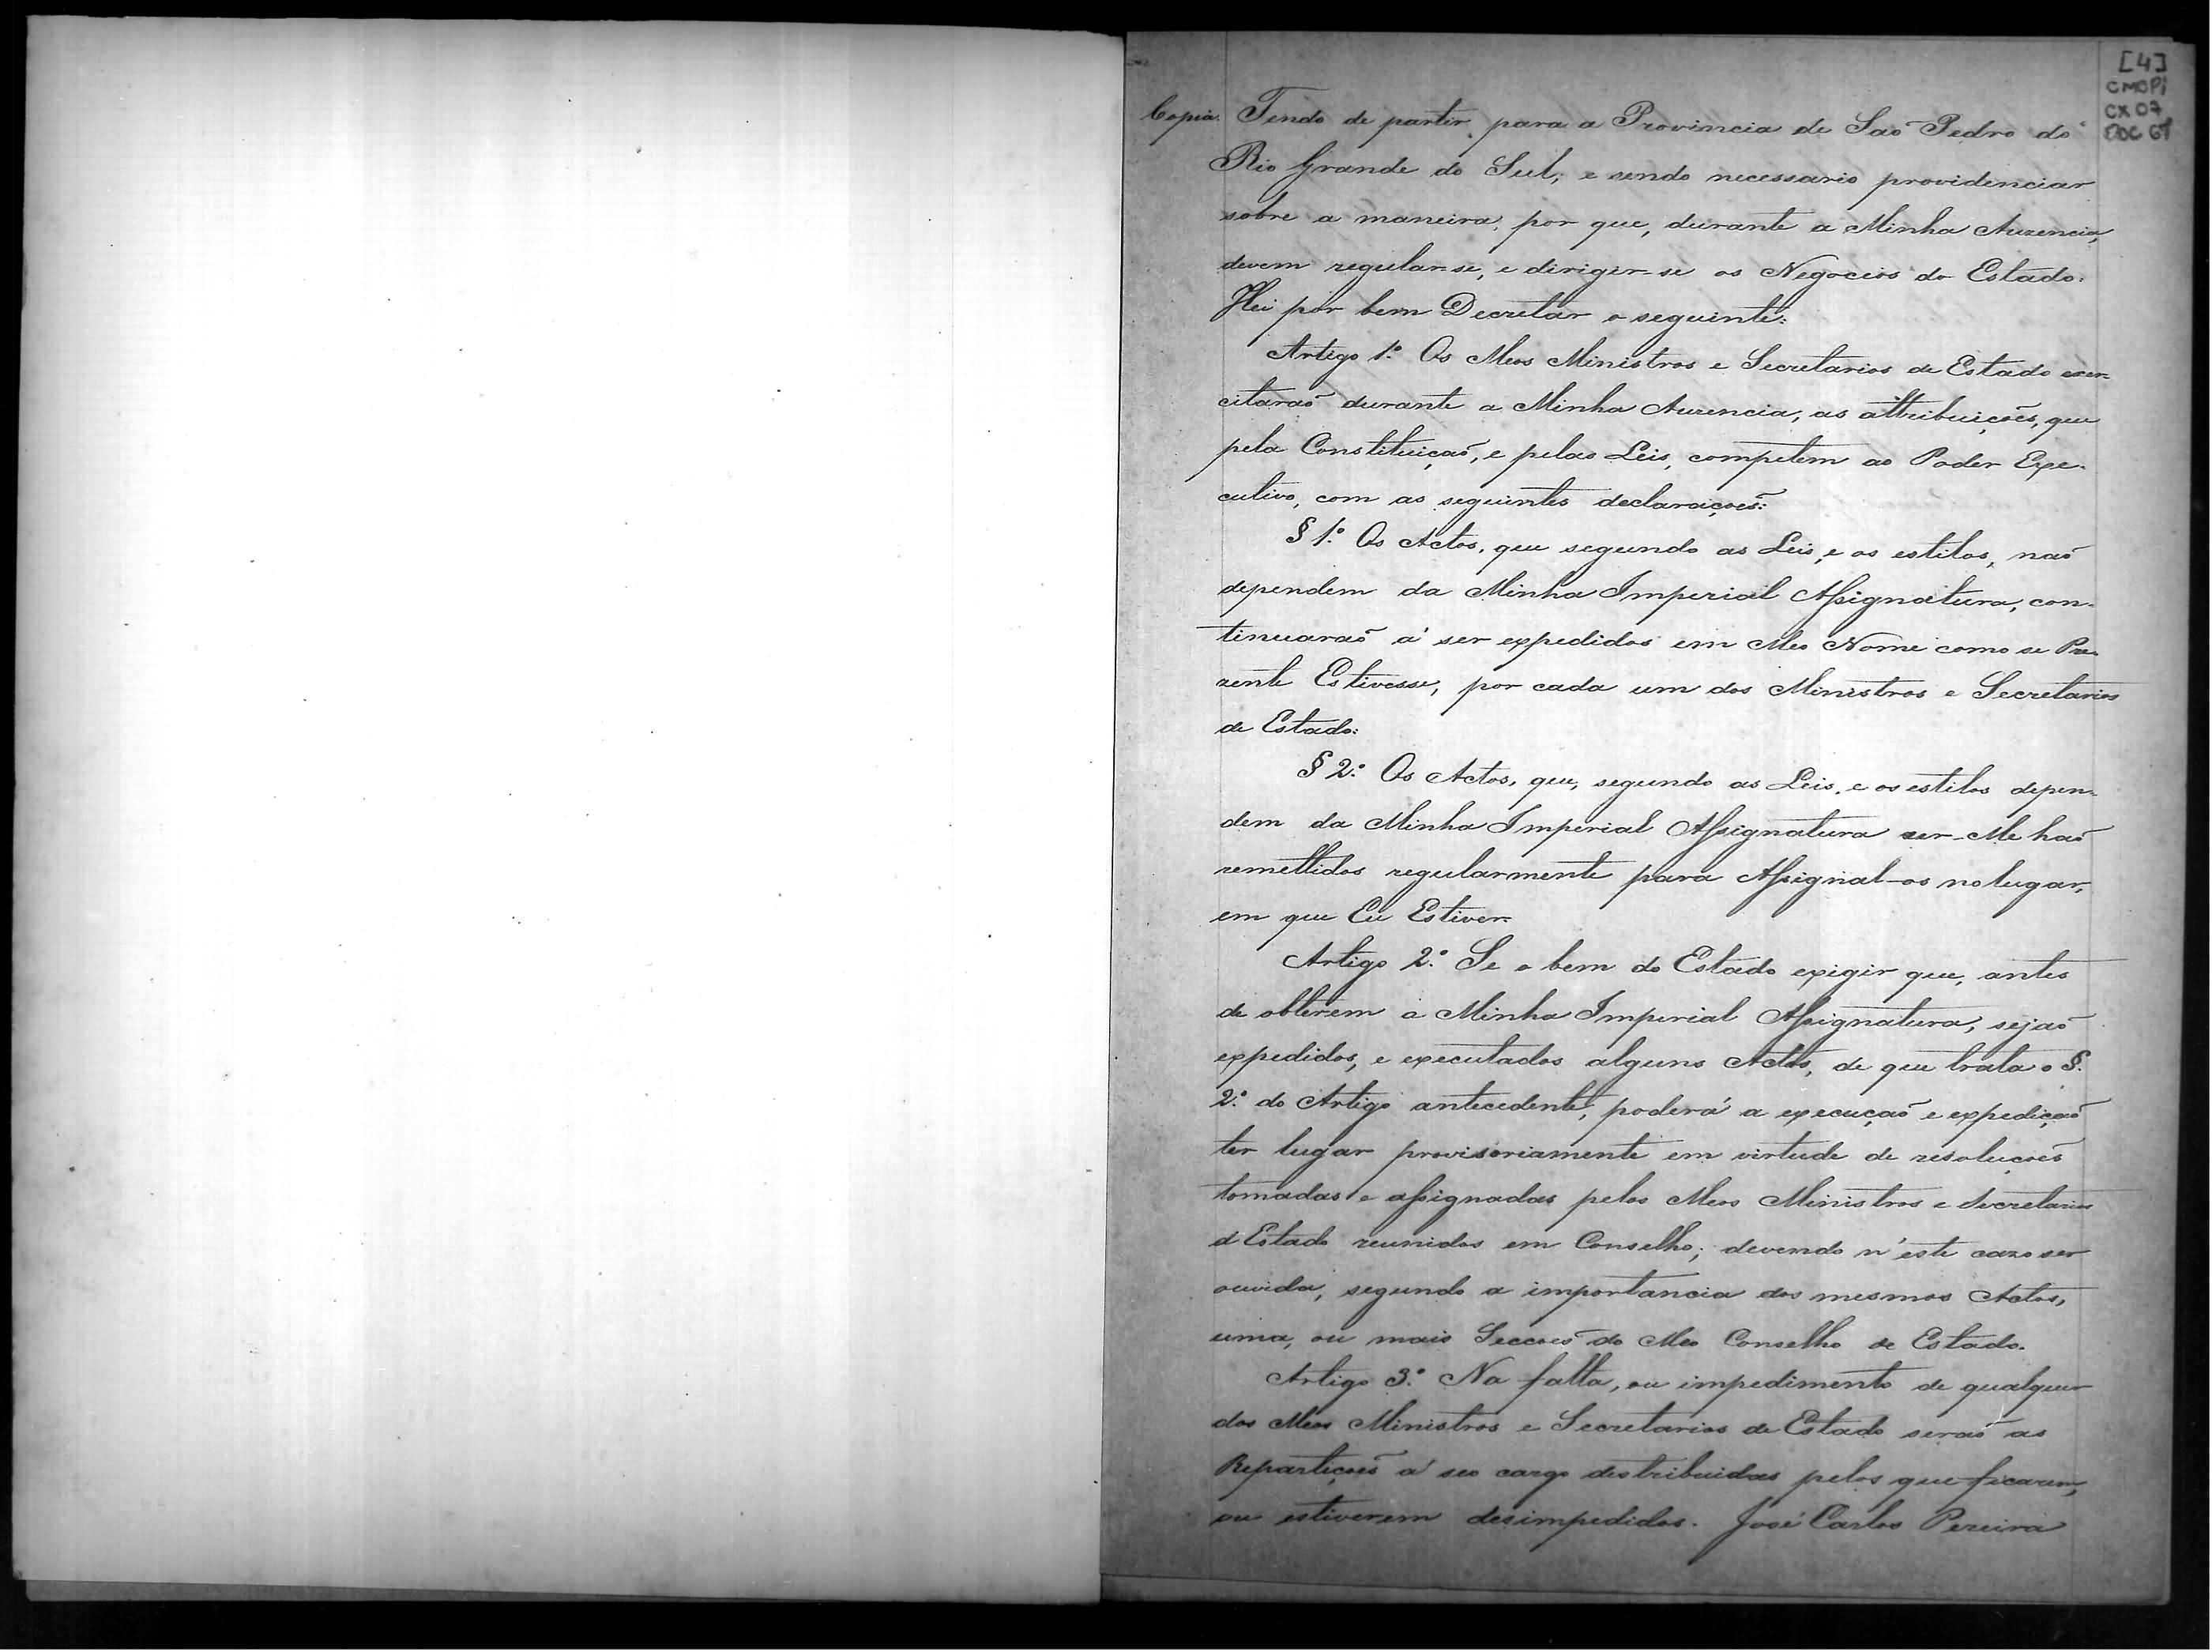 [4]
CMOPi
CX 07
DOC 61
Copia. Tendo de partir para a Provincia de Saõ Pedro do
Rio Grande do Sul; e sendo necessario providenciar
sobre a maneira, por que, durante a Minha Auzencia,
devem regular-se, e dirigir-se os Negocios do Estado.
Hei por bem Decretar o seguinte:
Artigo 1.º Os Meos Ministros e Secretarios de Estado exer-
citaraõ durante a Minha Auzencia, as attribuiçoẽs, que
pela Constituiçaõ, e pelas Leis, competem ao Poder Exe-
cutivo, com as seguintes declaraçoẽs:
§ 1.º Os Actos, que segundo as Leis, e os estilos, naõ
dependem da Minha Imperial Assignatura, con-
tinuaraõ á ser expedidos em Meo Nome como se Pre-
zente Estivesse, por cada um dos Ministros e Secretarios
de Estado:
§ 2.º Os Actos, que, segundo as Leis, e os estilos depen-
dem da Minha Imperial Assignatura ser-Me haõ
remettidos regularmente para Assignal-os no lugar,
em que Eu Estiver.
Artigo 2.º Se o bem do Estado exigir que, antes
de obterem a Minha Imperial Assignatura, sejaõ
expedidos, e executados alguns Actos, de que trata o §.
2.º do Artigo antecedente, poderá a execuçaõ e expediçaõ
ter lugar provisoriamente em virtude de resoluçoẽs
tomadas e assignadas pelos Meos Ministros e Secretarios
d'Estado reunidos em Conselho; devendo n'este cazo ser
ouvida, segundo a importancia dos mesmos Actos,
uma, ou mais Secçoẽs do Meo Conselho de Estado.
Artigo 3.º Na falta, ou impedimento de qualquer
dos Meos Ministros e Secretarios de Estado seraõ as
Repartiçoẽs á seo cargo destribuidas pelos que ficarem,
ou estiverem desimpedidos. José Carlos Pereira